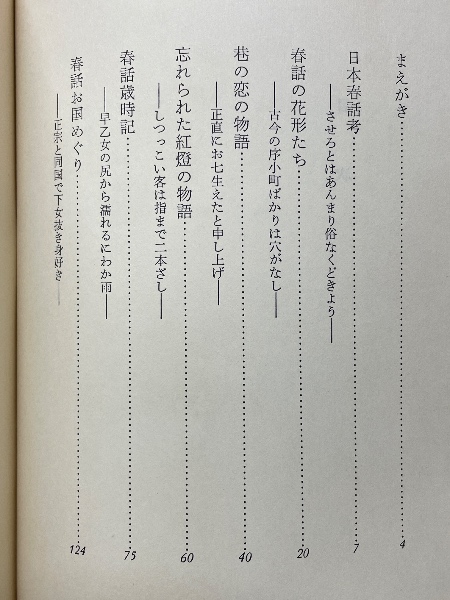 まえがき……4
日本春話考……7
――させろとはあんまり俗なくどきよう――
春話の花形たち……20
――古今の序小町ばかりは穴がなし――
巷の恋の物語……40
――正直にお七生えたと申し上げ――
忘れられた紅燈の物語……60
――しつっこい客は指まで二本ざし――
春話歳時記……75
――早乙女の尻から濡れるにわか雨――
春話お国めぐり……124
――正宗と同国で下女抜き身好き――